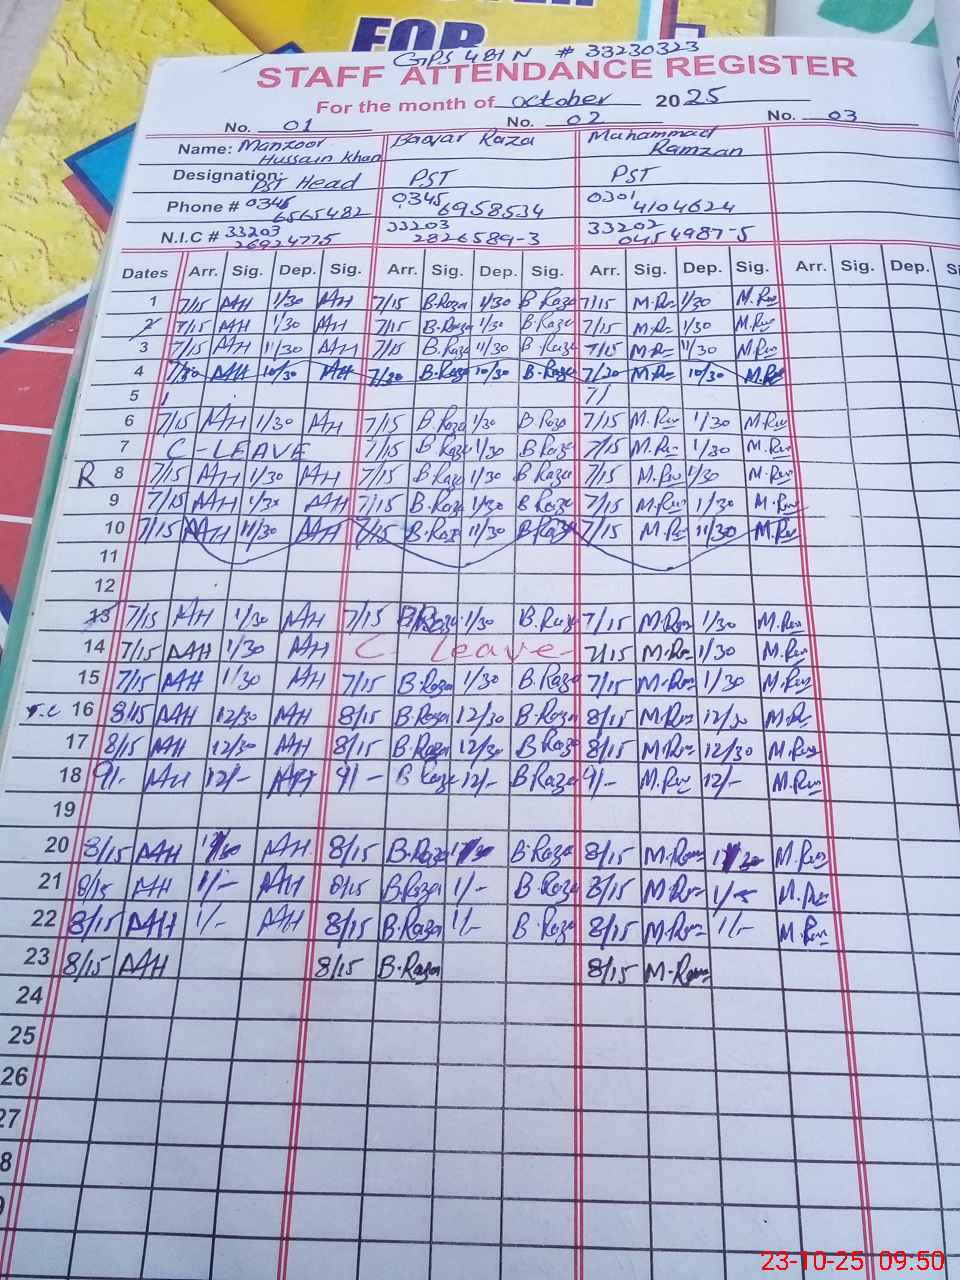 FOR
GPS 4B1N # 33230323
STAFF ATTENDANCE REGISTER
For the month of october 2025
No. 01 No. 02 No. 03
Name: Manzoor Hussain Khan Raza Muhammad Ramzan
Designation: PST Head PST PST
Phone # 0345 6565482 0345 6958534 0301 4104624
N.I.C # 33203 26924775 33203 2826589-3 33202 0454987-5
Dates Arr. Sig. Dep. Sig. Arr. Sig. Dep. Sig. Arr. Sig. Dep. Sig. Arr. Sig. Dep.
1 7/15 AAH 1/30 AAH 7/15 B.Raza 1/30 B Raza 7/15 M.Rm 1/30 M.Rm
2 7/15 AAH 1/30 AAH 7/15 B.Raza 1/30 B.Raza 7/15 M.Rm 1/30 M.Rm
3 7/15 AAH 11/30 AAH 7/15 B.Raza 11/30 B.Raza 7/15 M.Rm 11/30 M.Rm
4 AAH 10/30 AAH 7/20 B.Raza 10/30 B.Raza 7/20 M.Rm 10/30 M.Rm
5 7/
6 7/15 AAH 1/30 AAH 7/15 B.Raza 1/30 B.Raza 7/15 M.Rm 1/30 M.Rm
7 C-LEAVE 7/15 B Raza 1/30 B Raza 7/15 M.Rm 1/30 M.Rm
R 8 7/15 AAH 1/30 AAH 7/15 B.Raza 1/30 B Raza 7/15 M.Rm 1/30 M.Rm
9 7/15 AAH 1/30 AAH 7/15 B.Raza 1/30 B Raza 7/15 M.Rm 1/30 M.Rm
10 7/15 AAH 11/30 AAH 7/15 B.Raza 11/30 B.Raza 7/15 M.Rm 11/30 M.Rm
11
12
13 7/15 AAH 1/30 AAH 7/15 B.Raza 1/30 B.Raza 7/15 M.Rm 1/30 M.Rm
14 7/15 AAH 1/30 AAH C- Leave- 7/15 M.Rm 1/30 M.Rm
15 7/15 AAH 1/30 AAH 7/15 B.Raza 1/30 B.Raza 7/15 M.Rm 1/30 M.Rm
16 8/15 AAH 12/30 AAH 8/15 B.Raza 12/30 B.Raza 8/15 M.Rm 12/30 M.Rm
17 8/15 AAH 12/30 AAH 8/15 B.Raza 12/30 B Raza 8/15 M.Rm 12/30 M.Rm
18 9/- AAH 12/- AAH 9/- B Raza 12/- B Raza 9/- M.Rm 12/- M.Rm
19
20 8/15 AAH AAH 8/15 B.Raza B.Raza 8/15 M.Rm M.Rm
21 8/15 AAH 1/- AAH 8/15 B.Raza 1/- B.Raza 8/15 M.Rm 1/- M.Rm
22 8/15 AAH 1/- AAH 8/15 B.Raza 1/- B.Raza 8/15 M.Rm 1/- M.Rm
23 8/15 AAH 8/15 B.Raza 8/15 M.Rm
24
25
26
27
8
23-10-25 09:50